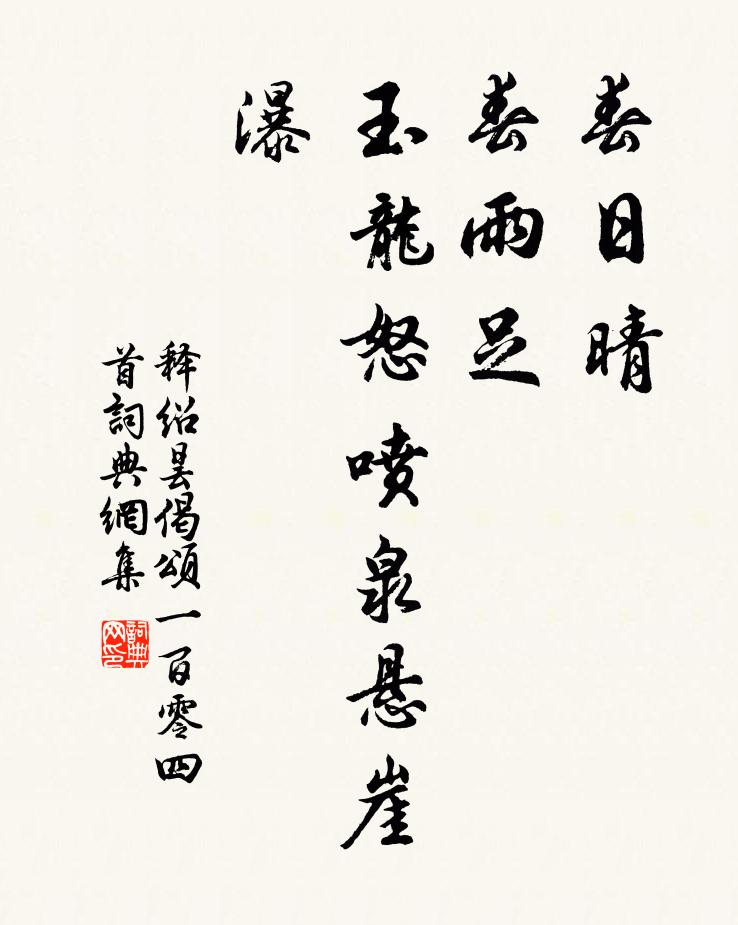 春日晴
春雨足
玉龍怒噴泉悬崖
瀑
释绍昙偈頌一百零四
首詞典網集
詞典
网印